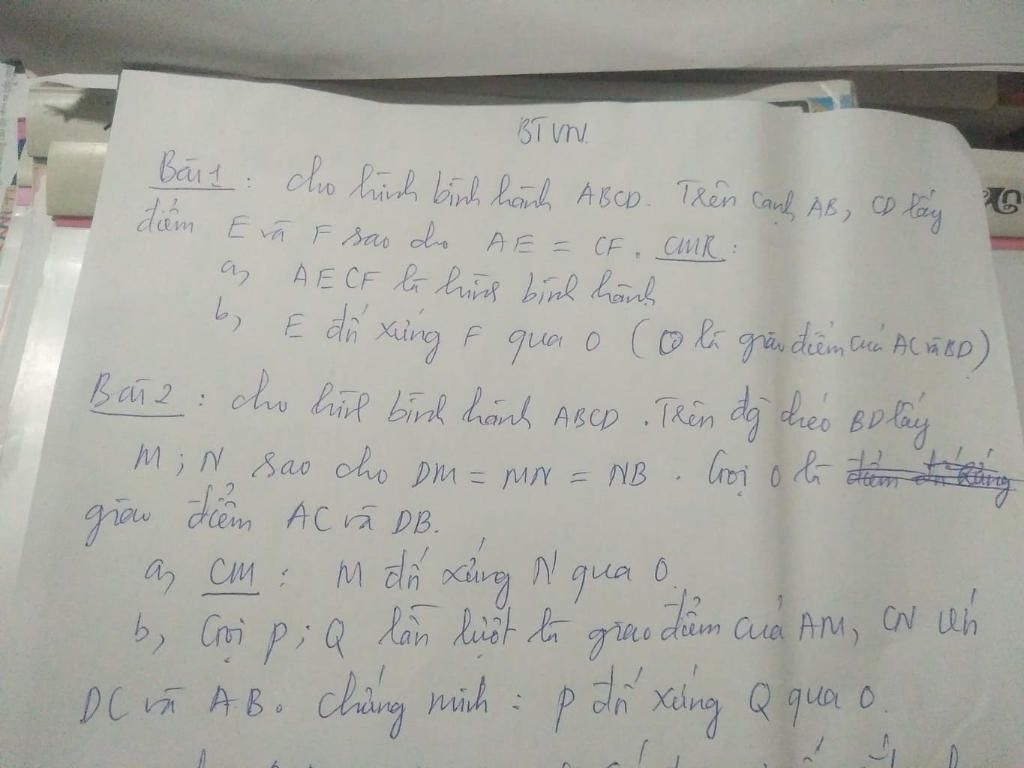 BTVN.
Bài 1 : Cho hình bình hành ABCD. Trên cạnh AB, CD lấy
điểm E và F sao cho AE = CF. CMR :
a, AECF là hình bình hành
b, E đối xứng F qua O ( O là giao điểm của AC và BD)
Bài 2 : Cho hình bình hành ABCD . Trên đg chéo BD lấy
M ; N sao cho DM = MN = NB . Gọi O là điểm đối xứng
giao điểm AC và DB.
a, CM : M đối xứng N qua O.
b, Gọi P ; Q lần lượt là giao điểm của AM, CN với
DC và AB. Chứng minh : P đối xứng Q qua O.